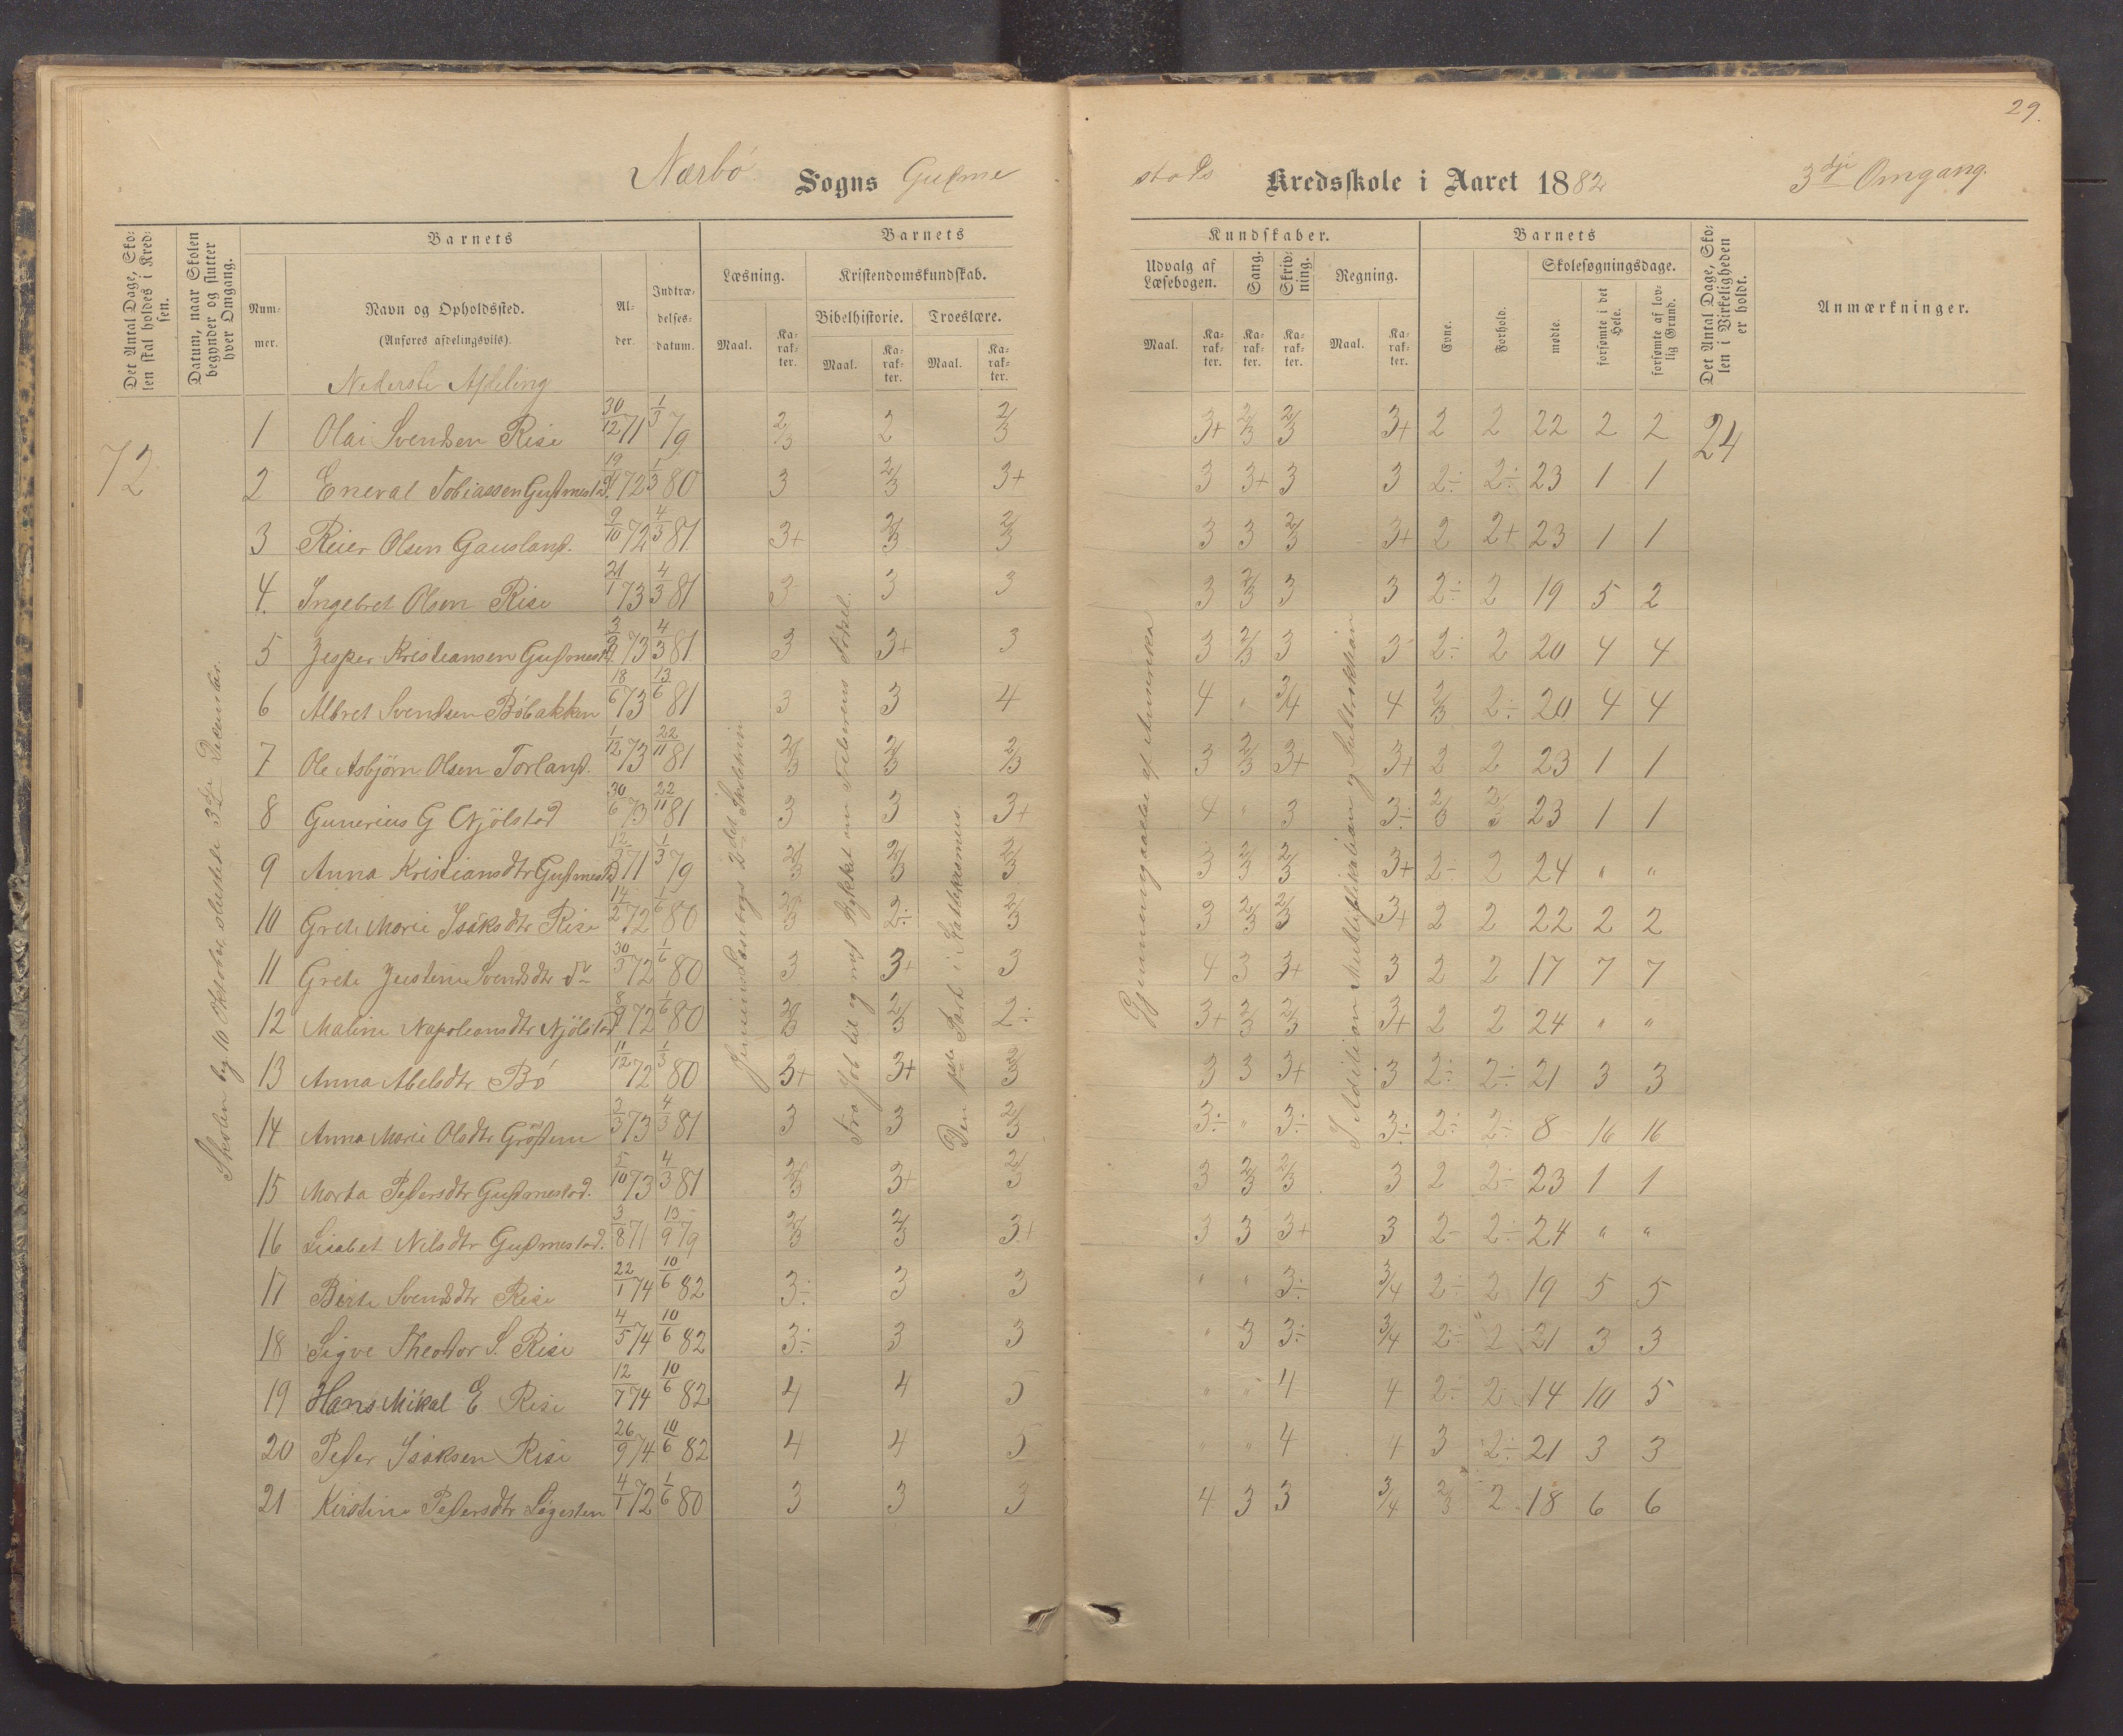 29.
Nærbö Sogns Gudme
stads Kredsskole i Aaret 1882 3dje Omgang.
Det Antal Dage, Skolen skal holdes i Kredsen.
Datum, naar Skolen begynder og slutter hver Omgang.
Barnets
Nummer.
Navn og Opholdssted.
(Anføres afdelingsvis).
Alder.
Indtrædelsesdatum.
Barnets
Læsning.
Maal.
Karakter.
Kristendomskundskab.
Bibelhistorie.
Maal.
Karakter.
Troeslære.
Maal.
Karakter.
Kundskaber.
Udvalg af Læsebogen.
Maal.
Karakter.
Sang.
Karakter.
Skrivning.
Karakter.
Regning.
Maal.
Karakter.
Barnets
Evne.
Forhold.
Skolesøgningsdage.
mødte.
forsømte i det Hele.
forsømte af lovlig Grund.
Det Antal Dage, Skolen i Virkeligheden er holdt.
Anmærkninger.
Nederste Afdeling
72
Skolen beg. 10 Oktober, sluttede 3dje December.
Jensens Læsebogs 2det Skoletrin
Fra Job til og med Stykket om Frelserens Fødsel.
Den 1ste Part i Katekismus.
Gjennemgaaelse af Amerika
I Addition Multiplikation og Subtraktion
24
1 Olai Svendsen Rise 30/12 71 1/3 79. 2/3 2 2/3 3+ 2/3 2/3 3+ 2 2 22 2 2
2 Eneval Tobiassen Gudmestad. 72 1/3 80 3 2/3 3+ 3 3+ 3 3 2÷ 2÷ 23 1 1
3 Reier Olsen Gausland. 9/10 72 4/3 81. 3+ 2/3 2/3 3 3 2/3 3+ 2 2+ 23 1 1
4. Ingebret Olsen Rise 21/1 73 4/3 81 3 3 3 3 2/3 3 3 2÷ 2 19 5 2
5 Jesper Kristiansen Gudmestd. 3/9 73 4/3 81. 3 3+ 3 3 2/3 3 3 2÷ 2 20 4 4
6 Albret Svendsen Böbakken 18/6 73 13/6 81 3 3 4 4 " 3/4 4 2/3 2÷ 20 4 4
7 Ole Asbjörn Olsen Torland. 1/12 73 22/11 81 2/3 2/3 2/3 3 2/3 3+ 3+ 2 2 23 1 1
8 Gunerius G Njölstad 30/6 73 22/11 81 3 3 3+ 4 " 3 3÷ 2/3 2/3 23 1 1
9 Anna Kristiansdtr Gudmestad 71 1/3 79 2/3 2/3 2/3 3 2/3 2/3 3+ 2÷ 2 24 " "
10 Grete Marie Isaksdtr Rise 14/2 72 1/6 80 2/3 2÷ 2/3 3 2/3 2/3 3+ 2 2 22 2 2
11 Grete Justine Svendsdtr do 30/5 72 1/6 80 3 3+ 3 4 3 3+ 3 2 2 17 7 7
12 Maline Napoleansdtr Njölstad 8/9 72 1/6 80 2/3 2/3 2÷ 3+ 2/3 2/3 3+ 2 2 24 " "
13 Anna Abelsdtr Bö 11/12 72 1/3 80 3+ 3+ 2/3 3 3 3+ 3 2÷ 2÷ 21 3 3
14 Anna Marie Olsdtr 3/3 73 4/3 81 3 3 2/3 3÷ " 3÷ 3÷ 2÷ 2÷ 8 16 16
15 Marta Pedersdtr Gudmestad. 5/10 73 4/3 81 2/3 3+ 2/3 3 2/3 2/3 3 2 2÷ 23 1 1
16 Lisabet Nilsdtr Gudmestad. 3/8 71 13/9 79 2/3 2/3 3+ 3 3 3+ 3 2÷ 2÷ 24 " "
17 Berte Svendsdtr Rise 22/1 74 10/6 82 3÷ 3 3 " " 3÷ 3/4 2÷ 2 19 5 5
18 Sigve Theodor S. Rise 4/5 74 10/6 82 3÷ 3 3 " 3 3÷ 3/4 2÷ 2 21 3 3
19 Hans Mikal E Rise 12/7 74 10/6 82 4 4 5 " " 4 4 2÷ 2 14 10 5
20 Peder Isaksen Rise 26/9 74 10/6 82 4 4 5 " " 4 4 3 2÷ 21 3 3
21 Kirstine Pedersdtr Ligesten 4/1 72 1/6 80 3 3 3 4 3 3 3/4 2/3 2 18 6 6